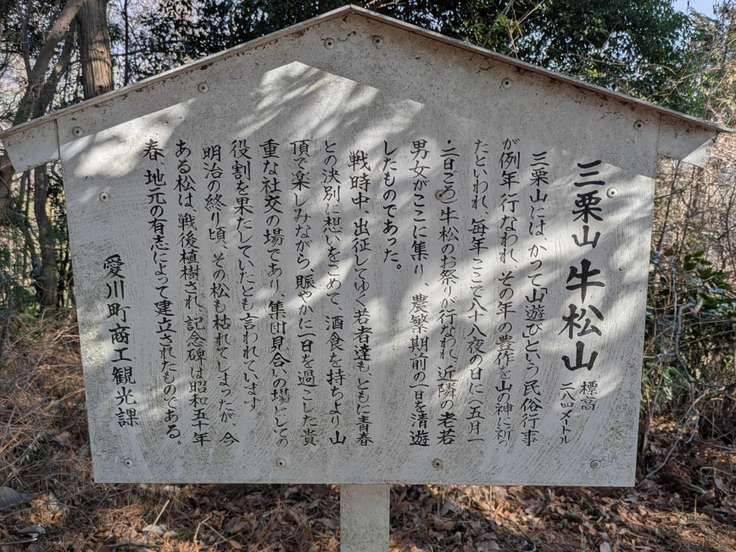 三栗山 牛松山 標高 二八四メートル
三栗山には、かつて「山遊び」という民俗行事
が例年行なわれ、その年の豊作を山の神に祈っ
たといわれ、毎年ここで八十八夜の日に(五月一
・二日ごろ)牛松のお祭りが行なわれ、近隣の老若
男女がここに集り、農繁期前の一日を清遊
したものであった。
戦時中、出征してゆく若者達も、ともに青春
との決別に想いをこめて、酒食を持ちより山
頂で楽しみながら、賑やかに一日を過ごした貴
重な社交の場であり、集団見合いの場としての
役割を果たしていたとも言われています。
明治の終り頃、その松も枯れてしまったが、今
ある松は、戦後植樹され、記念碑は昭和五十年
春、地元の有志によって建立されたものである。
愛川町商工観光課